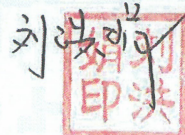 刘洪娟
刘洪
娟印